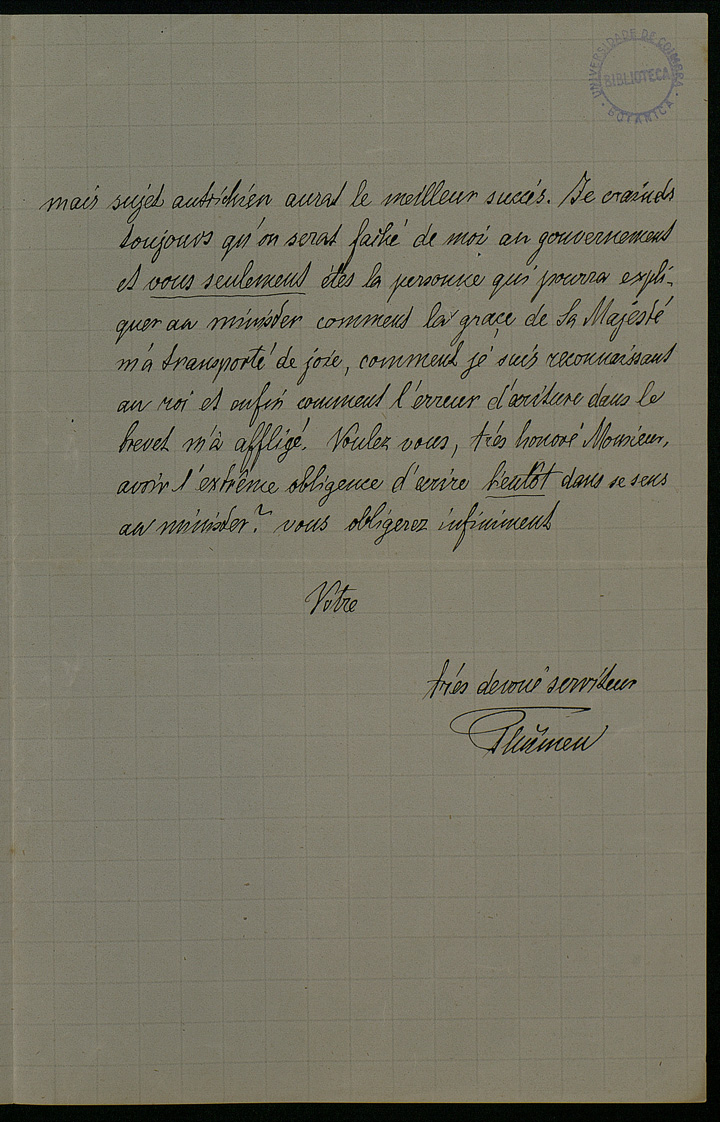 UNIVERSIDADE DE COIMBRA
BIBLIOTECA
BOTANICA
mais sujet autrichien aurat le meilleur succés. Je crainds
toujours qu'on serat faché de moi au gouvernement
et vous seulement étes la personne qui pourra expli-
quer au minister comment la graçe de Sa Majésté
m'a transporté de joie, comment jé suis reconnaissant
au roi et enfin comment l'érreur d'écriture dans le
brevet m'a affligé. Voulez vous, trés honoré Monsieur,
avoir l'extrême obligence d'ecrire bientôt dans se sens
au minister? vous obligerez infiniment
Votre
trés devoué serviteur
Thümen